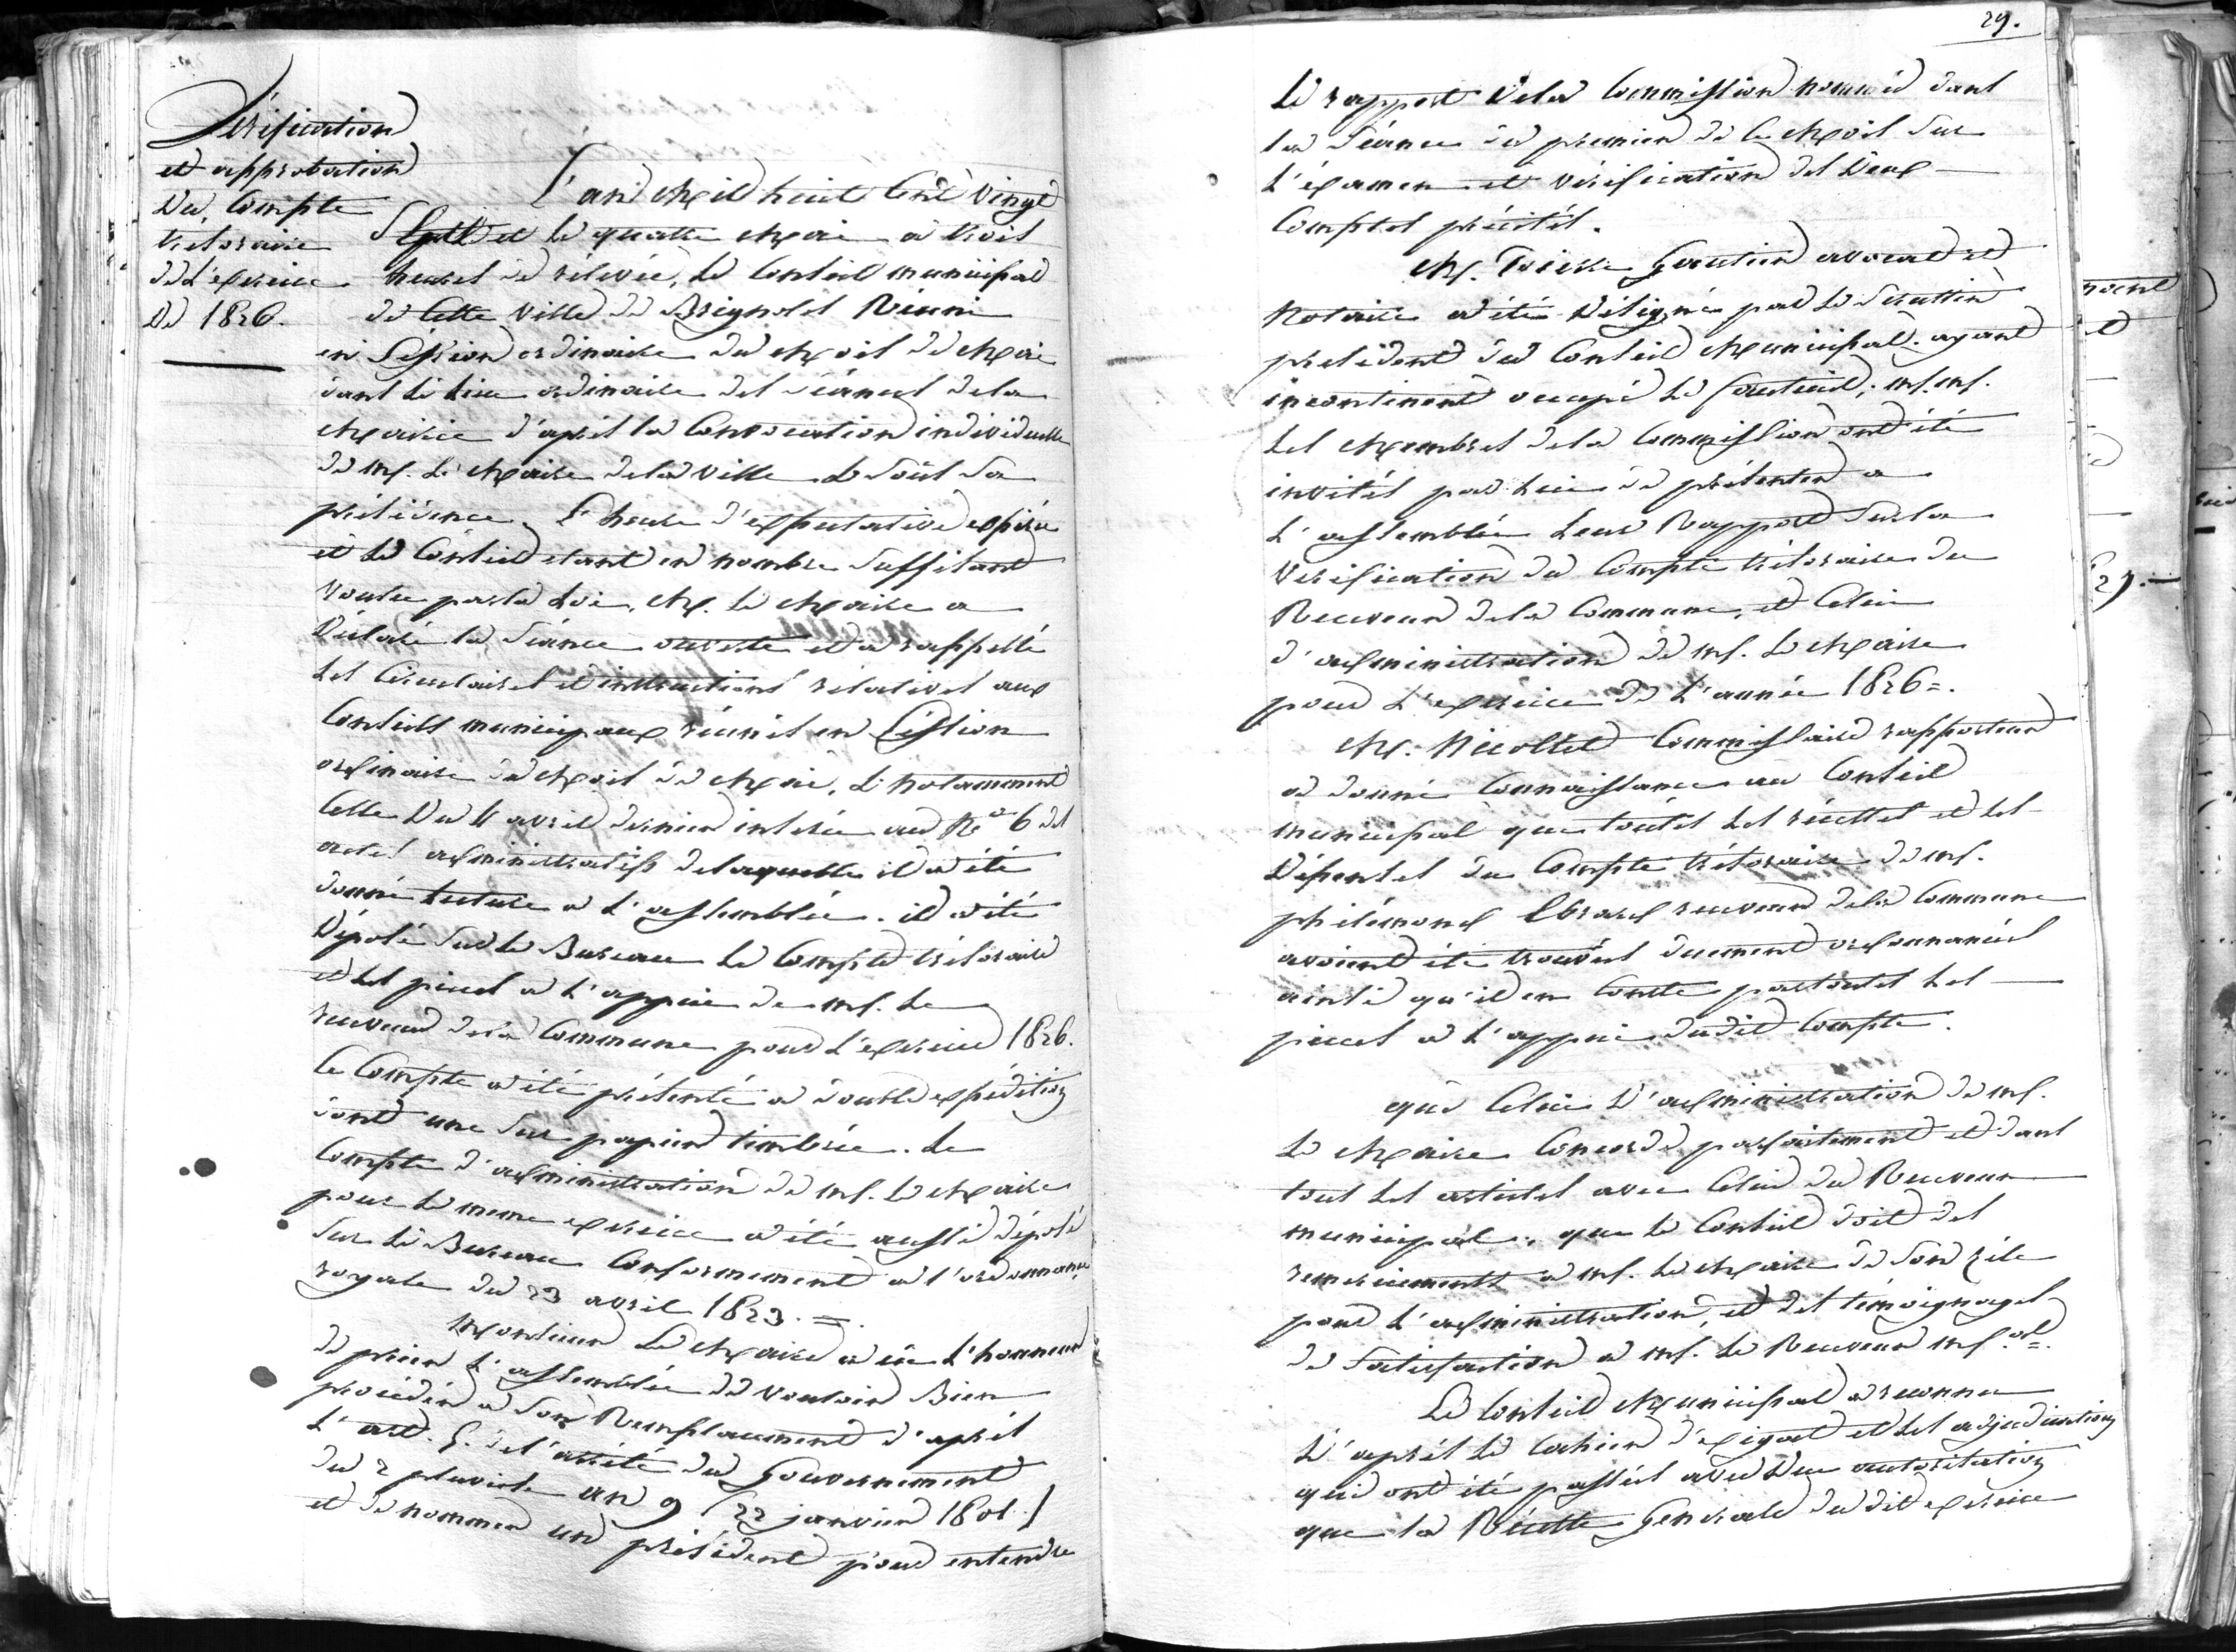 Vérification
et approbation
Du Compte
trésoraire
de L'exercice
De 1826.
L'an Mil huit Cent Vingt
Sept et le quatre Mai à trois
heures de rélevée, le Conseil municipal
de Cette Ville de Brignoles Réuni
en Session ordinaire du Mois de Mai
dans le lieu ordinaire des séances de la
Mairie d'après la Convocation individuelle
de M. le Maire de la Ville & Sous Sa
présidence. L'heure d'expectative expirée
et le Conseil etant en nombre Suffisant
voulu par la Loi, M. le Maire a
Déclaré la Séance ouverte et a rappellé
les Circulaires et instructions rélatives aux
Conseils municipaux réunis en Cession
ordinaire du Mois de Mai, & notamment
Celle Du 11 avril dernier inserée au N.º 6 des
actes administratifs de laquelle il a été
donné lecture a L'assemblée. il a été
Déposé Sur le Bureau le Compte trésoraire
et les pieces a L'appui de M. le
receveur de la Commune pour L'exercice 1826.
Ce Compte a été présenté a double expédition
dont une Sur papier timbrée. Le
Compte d'administration de M. le Maire
pour le meme exercice a été aussi déposé
Sur le Bureau Conformement a l'ordonnance
royale du 23 avril 1823. =
Monsieur Le Maire a eu L'honneur
de prier L'assemblée de vouloir Bien
procéder a Son Remplacement d'après
L'art. 5. de l'arrété du Gouvernement
du 2 pluviose an 9 (22 janvier 1801.)
et de nommer un président pour entendre
29.
Le rapport de la Commission nommée dans
la Séance du premier de Ce Mois Sur
L'éxamen et vérification des Deux
Comptes précités.
M. Gautier avocat et
Notaire a été Désigné par le Scrutin
president du Conseil Municipal. ayant
incontinent occupé le fauteuil; M.M.
les Membres de la Commission ont été
invités par lui de présenter a
L'assemblée leur Rapport Sur la
Vérification du Compte trésoraire du
Receveur de la Commune, et Celui
d'administration de M. le Maire
pour L'exercice de L'année 1826 =.
M. Commissaire rapporteur
a donné Connaissance au Conseil
municipal que toutes les récettes et les
Dépenses du Compte trésoraire de M.
receveur de la Commune
avoient été trouvés duement ordonnancées
ainsi qu'il en Conste par toutes les
pieces a L'appui du dit Compte.
que Celui D'administration de M.
Le Maire Concorde parfaitement et dans
tous les articles avec Celui du Receveur
municipal. que le Conseil doit des
remerciements a M. le Maire de Son zéle
pour L'administration, et des témoignages
de Satisfaction a M. le Receveur M.al =.
Le Conseil Municipal a reconnu
D'après le Cahier d'exigat et les adjudications
qui ont été passées avec Due autorisation
que la Récette Generale du dit exercice